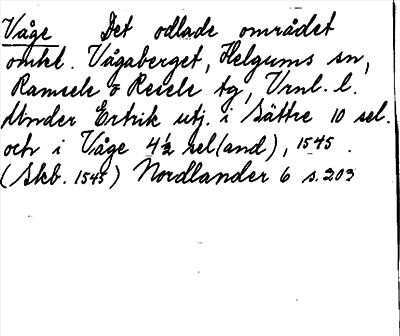 Våge Det odlade området
omkr. Vågaberget, Helgums sn,
Ramsele o Resele tg, Vrnl. l.
Under Ertrik utj. i Sättre 10 sel.
och i Våge 4½ sel(and), 1545.
(Skb. 1545) Nordlander 6 s. 203